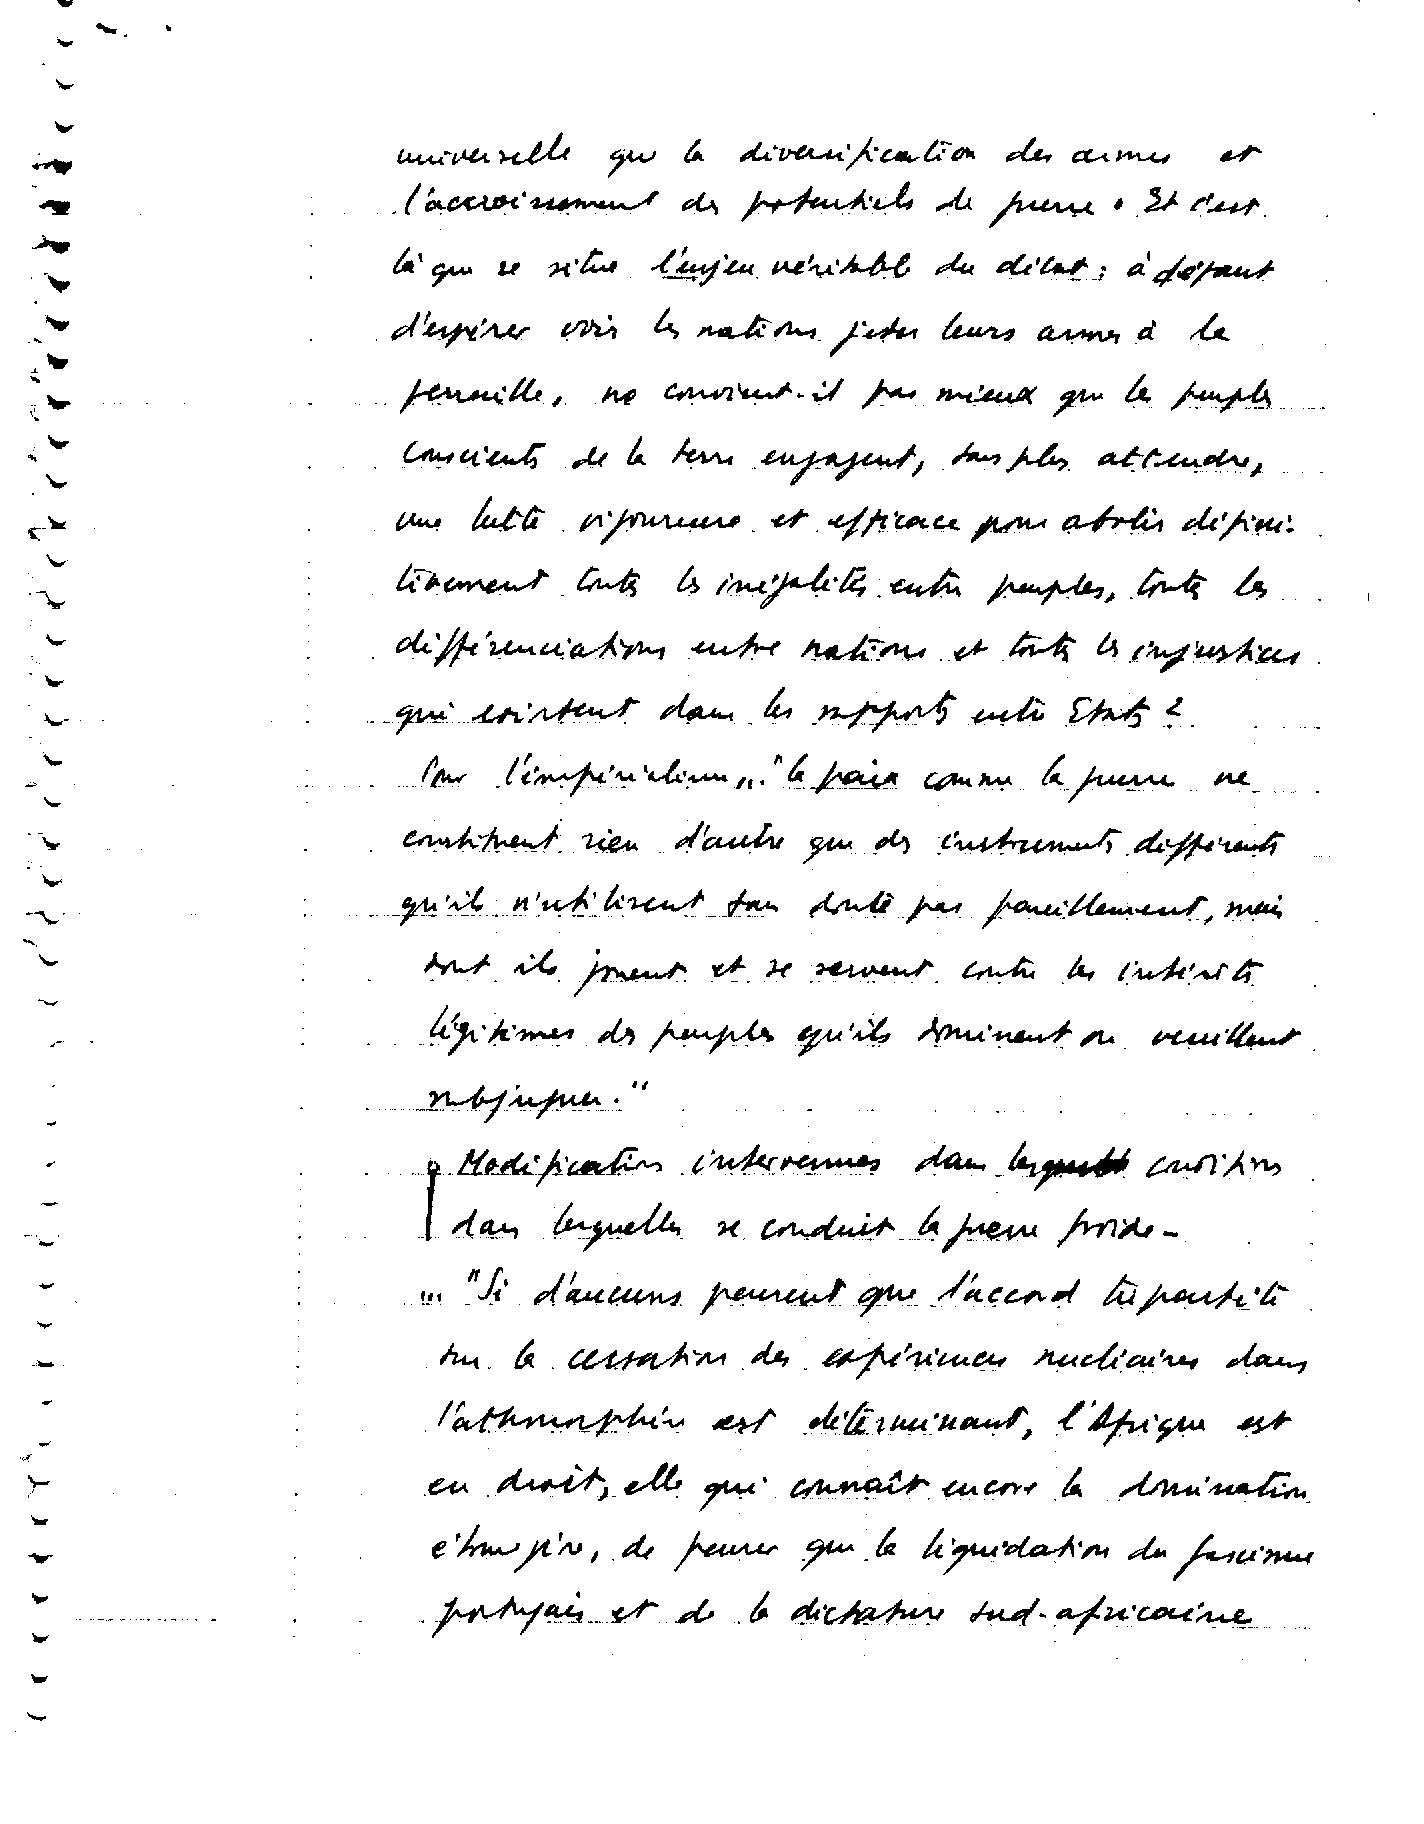 universelle que la diversification des armes et
l'accroissement des potentiels de guerre. Et c'est
là que se situe l'enjeu véritable du débat : à défaut
d'espérer voir les nations jeter leurs armes à la
ferraille, ne convient-il pas mieux que les peuples
conscients de la terre engagent, sans plus attendre,
une lutte vigoureuse et efficace pour abolir défini-
tivement toutes les inégalités entre peuples, toutes les
différenciations entre nations et toutes les injustices
qui existent dans les rapports entre Etats ?
Pour l'impérialisme..." la paix comme la guerre ne
constituent rien d'autre que des instruments différents
qu'ils n'utilisent sans doute pas pareillement, mais
dont ils jouent et se servent contre les intérêts
légitimes des peuples qu'ils dominent ou veuillent
subjuguer."
Modifications intervenues dans les conditions
dans lesquelles se conduit la guerre froide -
... "Si d'aucuns peuvent que l'accord tripartite
sur la cessation des expériences nucléaires dans
l'athmosphère est déterminant, l'Afrique est
en droit, elle qui connaît encore la domination
étrangère, de penser que la liquidation du fascisme
portugais et de la dictature sud-africaine